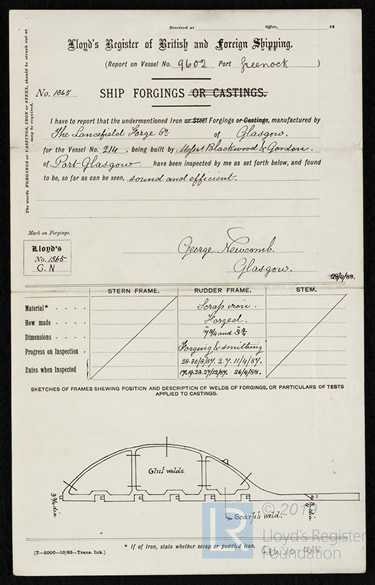 Received at Office, 18
Lloyd's Register of British and Foreign Shipping.
(Report on Vessel No. 9602 Port Greenock )
No. 1865 SHIP FORGINGS OR CASTINGS.
The words FORGINGS or CASTINGS, IRON or STEEL, should be struck out as may be required.
I have to report that the undermentioned Iron or Steel Forgings or Castings, manufactured by
The Lancefield Forge Co of Glasgow.
for the Vessel No. 214, being built by Messrs Blackwood & Gordon.
of Port Glasgow have been inspected by me as set forth below, and found
to be, so far as can be seen, sound and efficient.
Mark on Forgings.
Lloyd's
No. 1865
G. N
George Newcomb.
Glasgow.
STERN FRAME. RUDDER FRAME. STEM.
Material* Scrap iron.
How made Forged.
Dimensions
Progress on Inspection Forging & smithing
Dates when Inspected
SKETCHES OF FRAMES SHEWING POSITION AND DESCRIPTION OF WELDS OF FORGINGS, OR PARTICULARS OF TESTS
APPLIED TO CASTINGS.
Glut welds.
Scarph weld.
* If of Iron, state whether scrap or puddled iron.
© 2019
LR
Lloyd's Register
Foundation